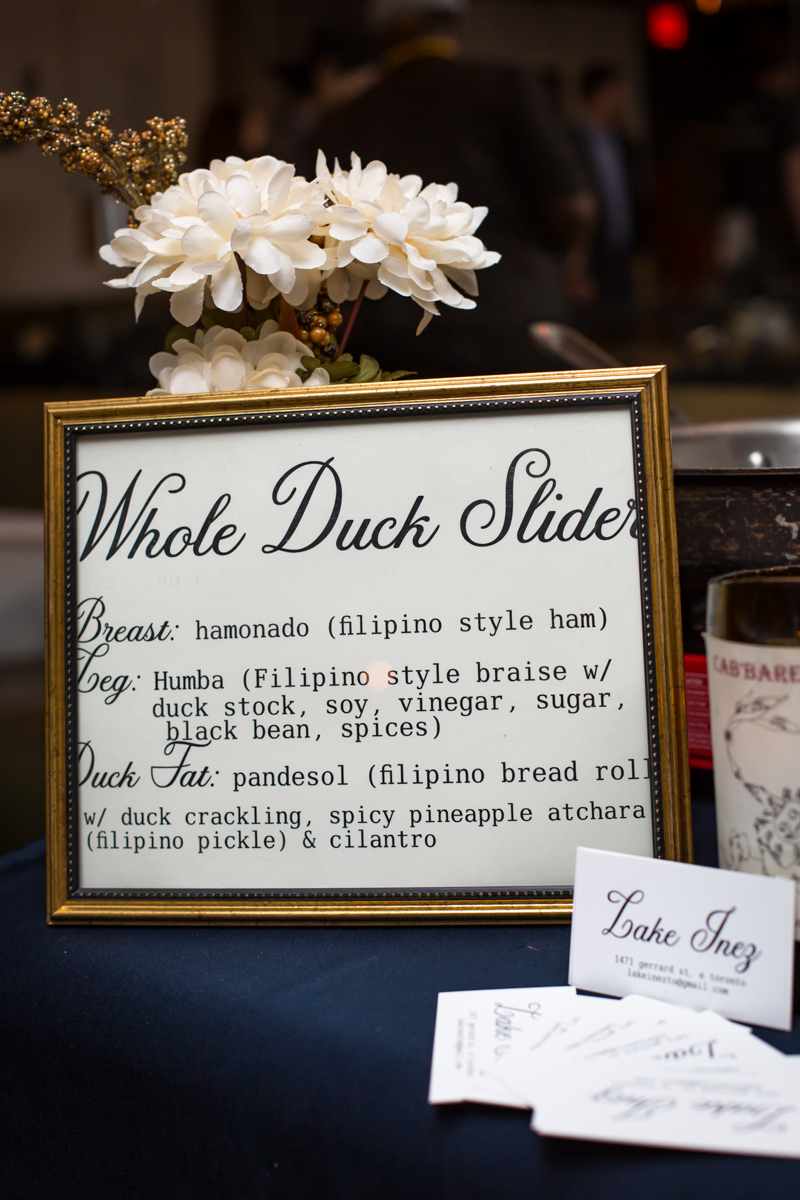 Whole Duck Slider
Breast: hamonado (filipino style ham)
Leg: Humba (Filipino style braise w/
duck stock, soy, vinegar, sugar,
black bean, spices)
Duck Fat: pandesol (filipino bread roll
w/ duck crackling, spicy pineapple atchara
(filipino pickle) & cilantro
CAB'BARE
Lake Inez
1471 gerrard st. e toronto
lakeinezto@gmail.com
Lake
Lake Inez